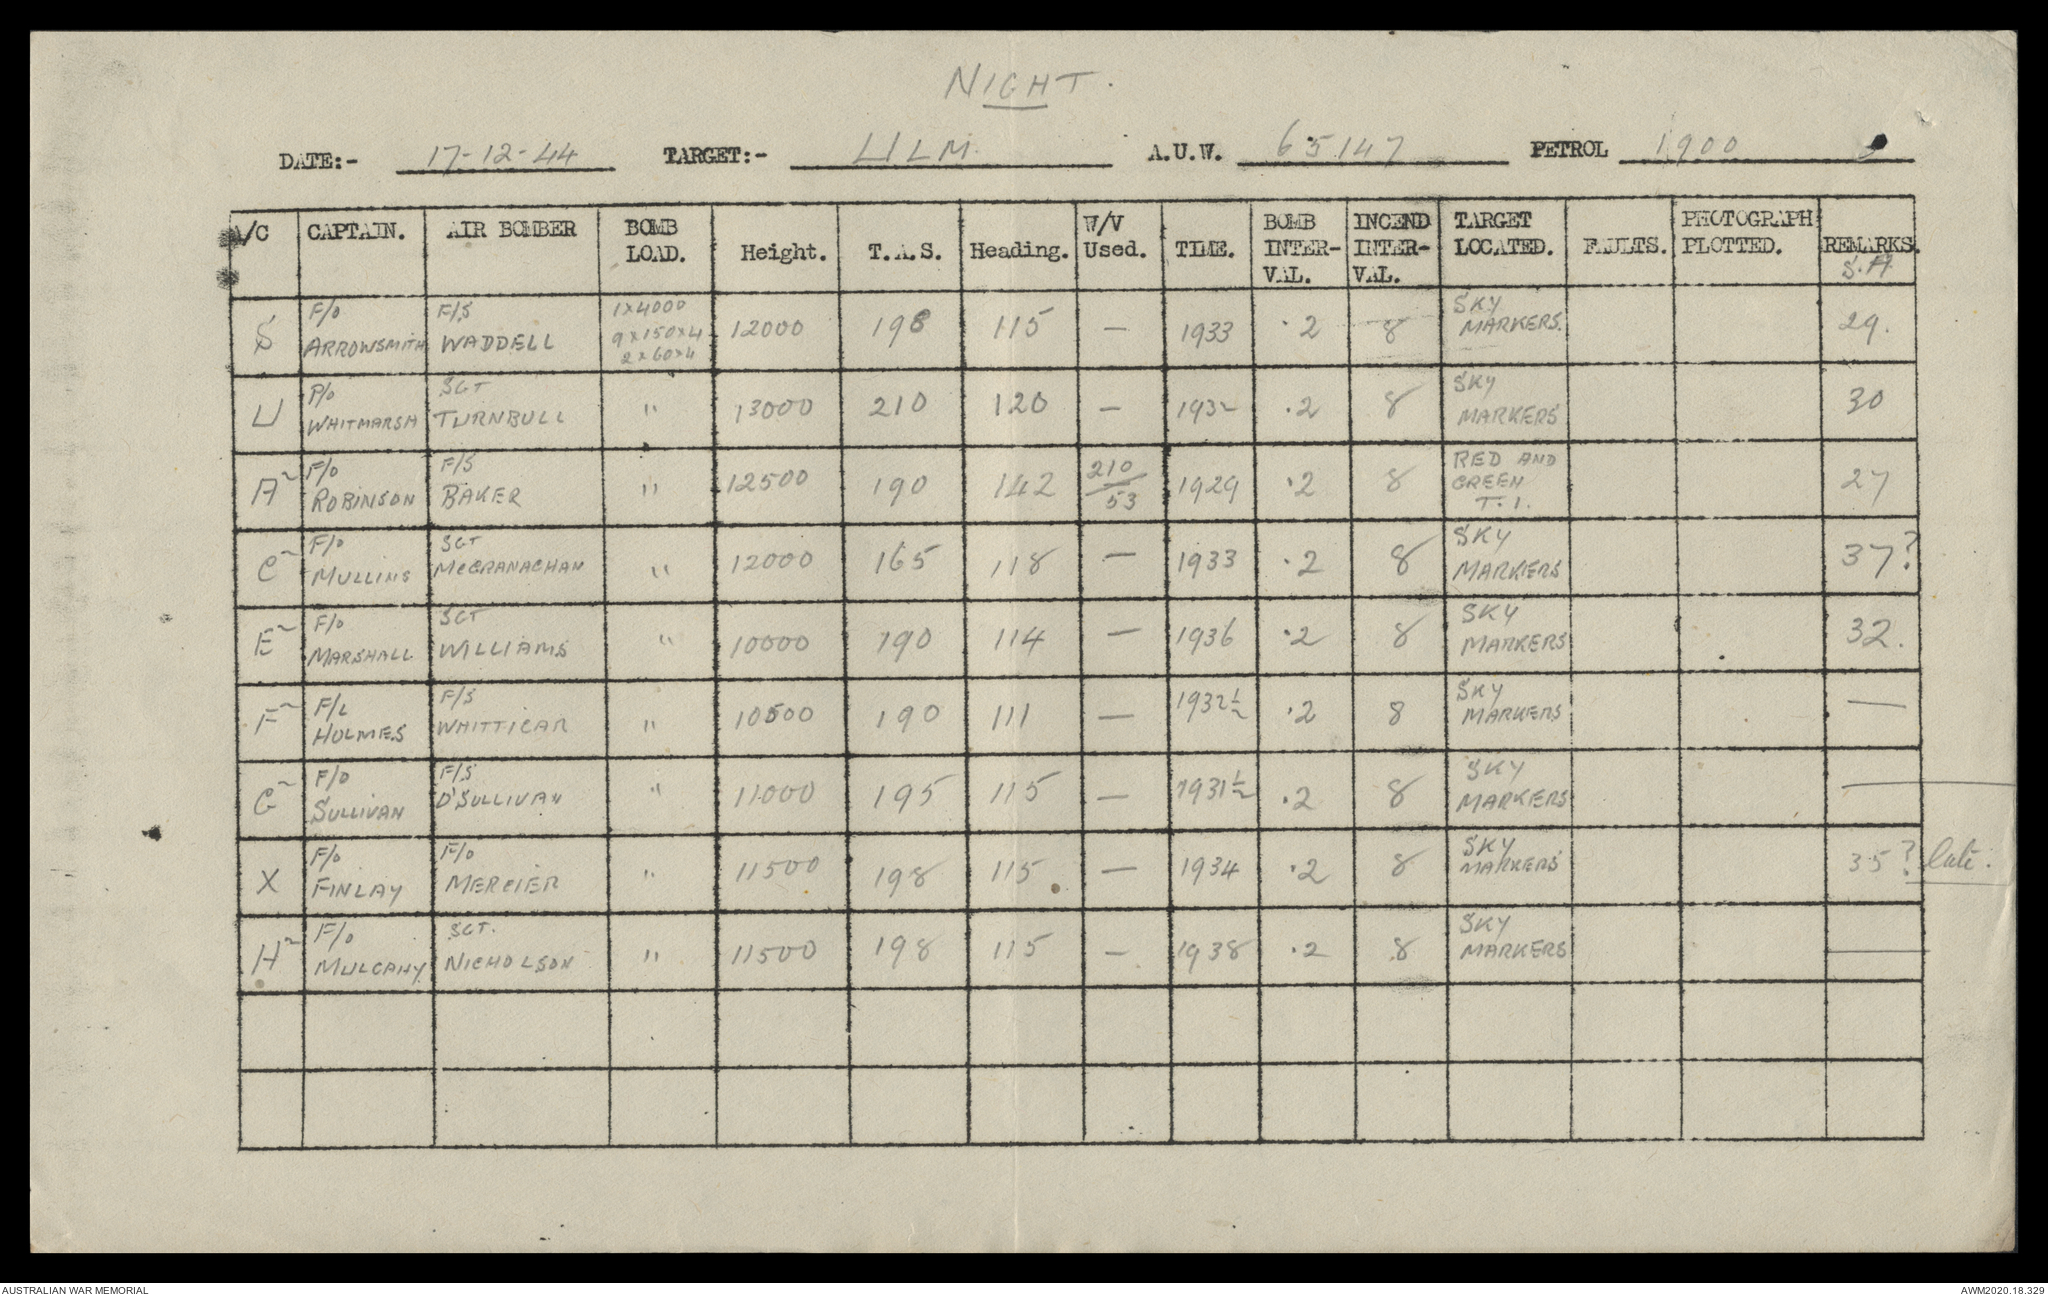 NIGHT.
DATE:- 17-12-44 TARGET:- ULM. A.U.W. 65147 PETROL 1900
A/C CAPTAIN. AIR BOMBER BOMB LOAD. Height. T.A.S. Heading. W/V Used. TIME. BOMB INTER-VAL. INCEND INTER-VAL. TARGET LOCATED. FAULTS. PHOTOGRAPH PLOTTED. REMARKS. S.A
S F/O ARROWSMITH F/S WADDELL 1x4000 9x150x4 2x60x4 12000 198 115 — 1933 .2 8 SKY MARKERS. 29.
U P/O WHITMARSH SGT TURNBULL " 13000 210 120 — 1932 .2 8 SKY MARKERS 30
A2 F/O ROBINSON F/S BAKER " 12500 190 142 210/53 1929 .2 8 RED AND GREEN T.I. 27
C2 F/O MULLINS SGT McCRANACHAN " 12000 165 118 — 1933 .2 8 SKY MARKERS 37?
E2 F/O MARSHALL SGT WILLIAMS " 10000 190 114 — 1936 .2 8 SKY MARKERS 32.
F2 F/L HOLMES F/S WHITTICAR " 10500 190 111 — 1932½ .2 8 SKY MARKERS —
G2 F/O SULLIVAN F/S O'SULLIVAN " 11000 195 115 — 1931½ .2 8 SKY MARKERS —
X F/O FINLAY F/O MERCIER " 11500 198 115 — 1934 .2 8 SKY MARKERS 35? late.
H2 F/O MULCAHY SGT. NICHOLSON " 11500 198 115 — 1938 .2 8 SKY MARKERS —
AUSTRALIAN WAR MEMORIAL AWM2020.18.329